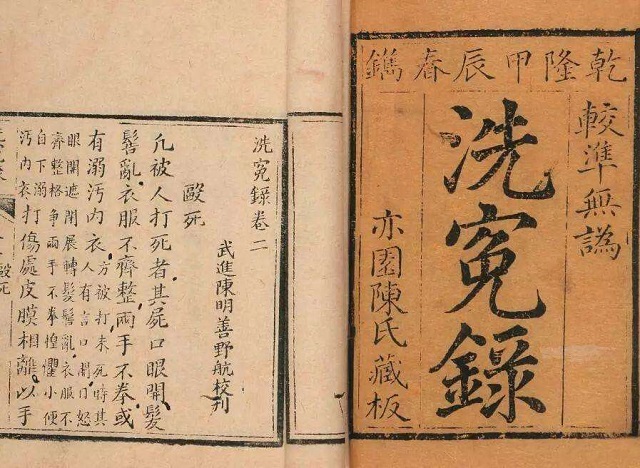 乾隆甲辰春鐫
較準無譌
洗冤錄
亦園陳氏藏板
洗冤錄卷二
武進陳明善野航校刊
毆死
凡被人打死者其屍口眼開髮
髻亂衣服不齊整兩手不拳或
有溺汚內衣方被打未死時其
人有言口開目怒
眼開遮閉展轉髮髻亂衣服不
齊整格爭兩手不拳惶懼小便
自下溺
汚內衣打傷處皮膜相離以手
毆死